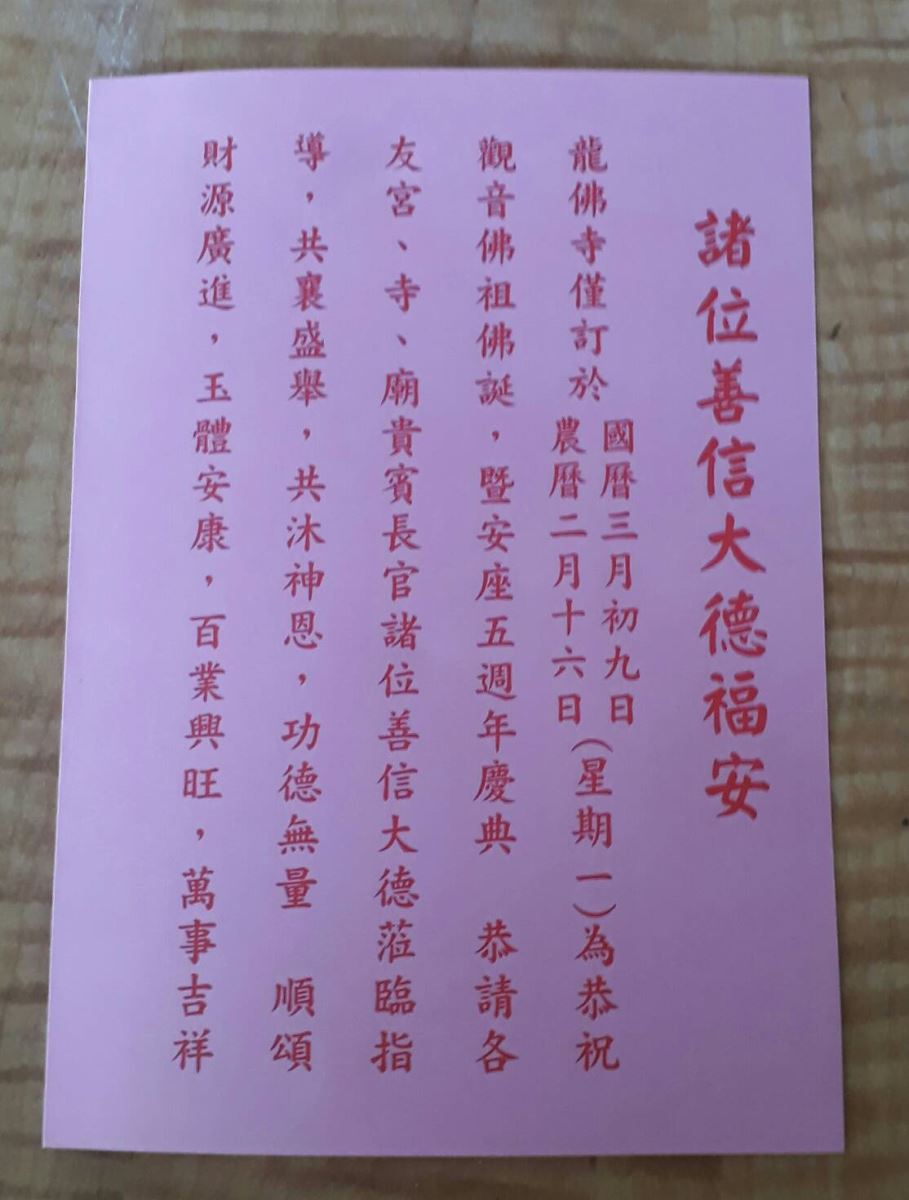 諸位善信大德福安
龍佛寺僅訂於
國曆三月初九日
農曆二月十六日
(星期一)為恭祝
觀音佛祖佛誕，暨安座五週年慶典　恭請各
友宮、寺、廟貴賓長官諸位善信大德蒞臨指
導，共襄盛舉，共沐神恩，功德無量　順頌
財源廣進，玉體安康，百業興旺，萬事吉祥